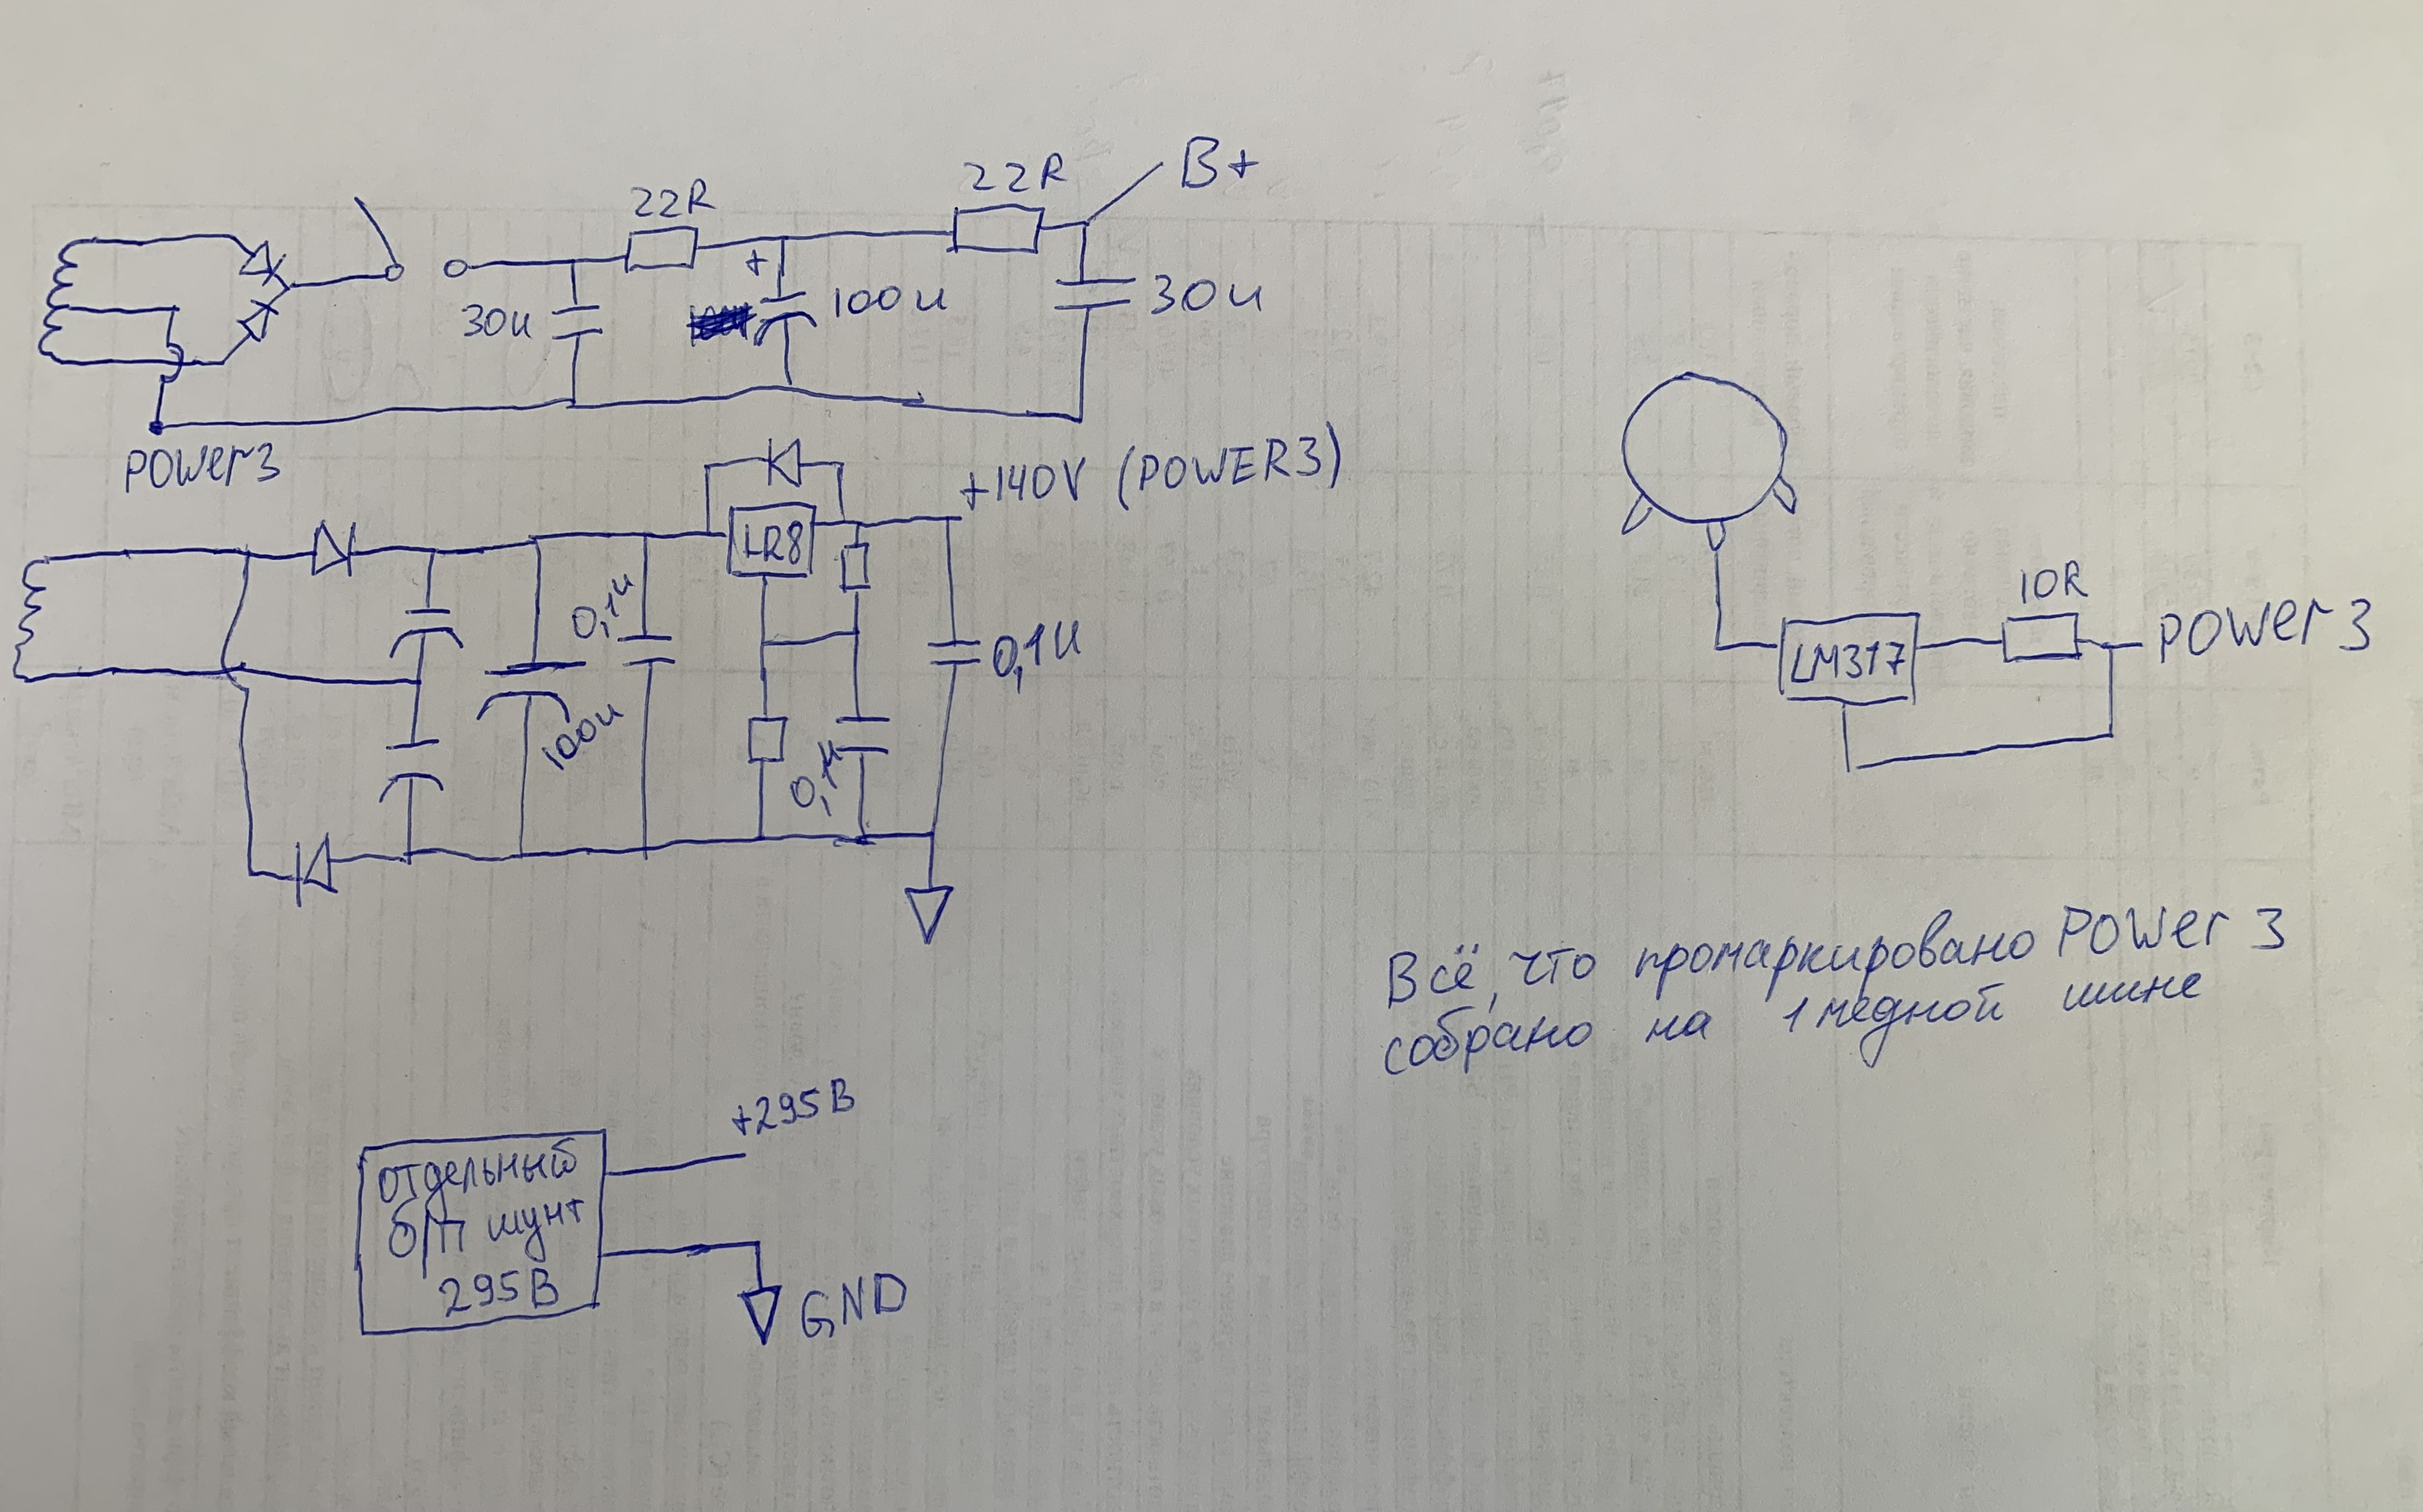 22R
22R
B+
+
100u
30u
30u
power3
+140V (POWER3)
LR8
0,1u
0,1u
100u
0,1u
10R
LM317
power 3
Всё, что промаркировано Power 3
собрано на 1 медной шине
+295В
отдельный
б/п шунт
295В
GND